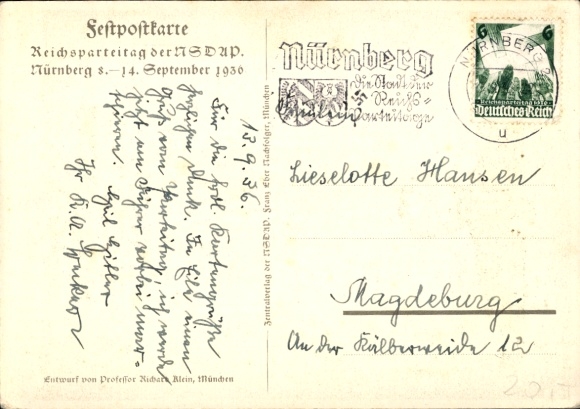 Festpostkarte
Reichsparteitag der NSDAP.
Nürnberg 8.–14. September 1936
13.9.36.
Für die frdl. Kartengrüße
herzlichen Dank. In Eile einen
Gruß vom Parteitag, ich werde
jetzt am Führer vorbei mar-
schieren.
Heil Hitler
Ihr K.A.
Entwurf von Professor Richard Klein, München
Zentralverlag der NSDAP. Franz Eher Nachfolger, München
Nürnberg
die Stadt der
Reichs-
parteitage
NÜRNBERG 2
u
6 6
Reichsparteitag 1936
Deutsches Reich
Lieselotte Hansen
Magdeburg
An der Kälberweide 12